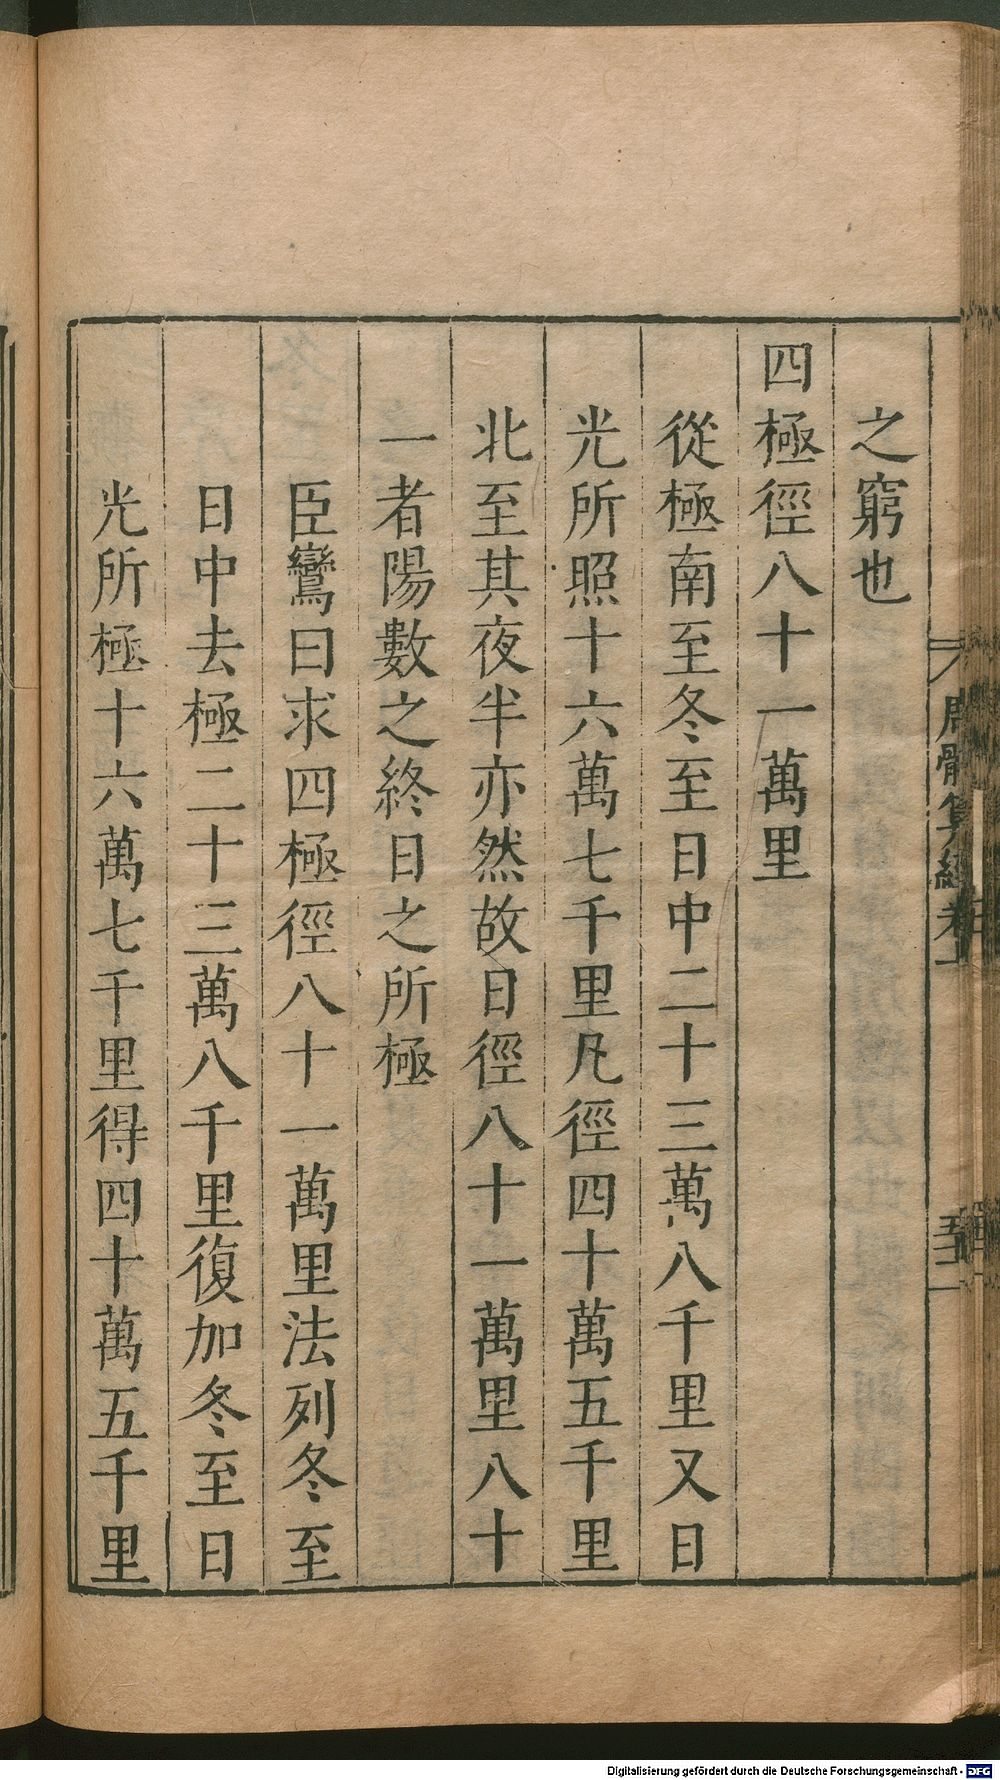 之窮也
四極徑八十一萬里
從極南至冬至日中二十三萬八千里又日
光所照十六萬七千里凡徑四十萬五千里
北至其夜半亦然故日徑八十一萬里八十
一者陽數之終日之所極
臣鸞曰求四極徑八十一萬里法列冬至
日中去極二十三萬八千里復加冬至日
光所極十六萬七千里得四十萬五千里
周髀算經卷上
Digitalisierung gefördert durch die Deutsche Forschungsgemeinschaft - DFG